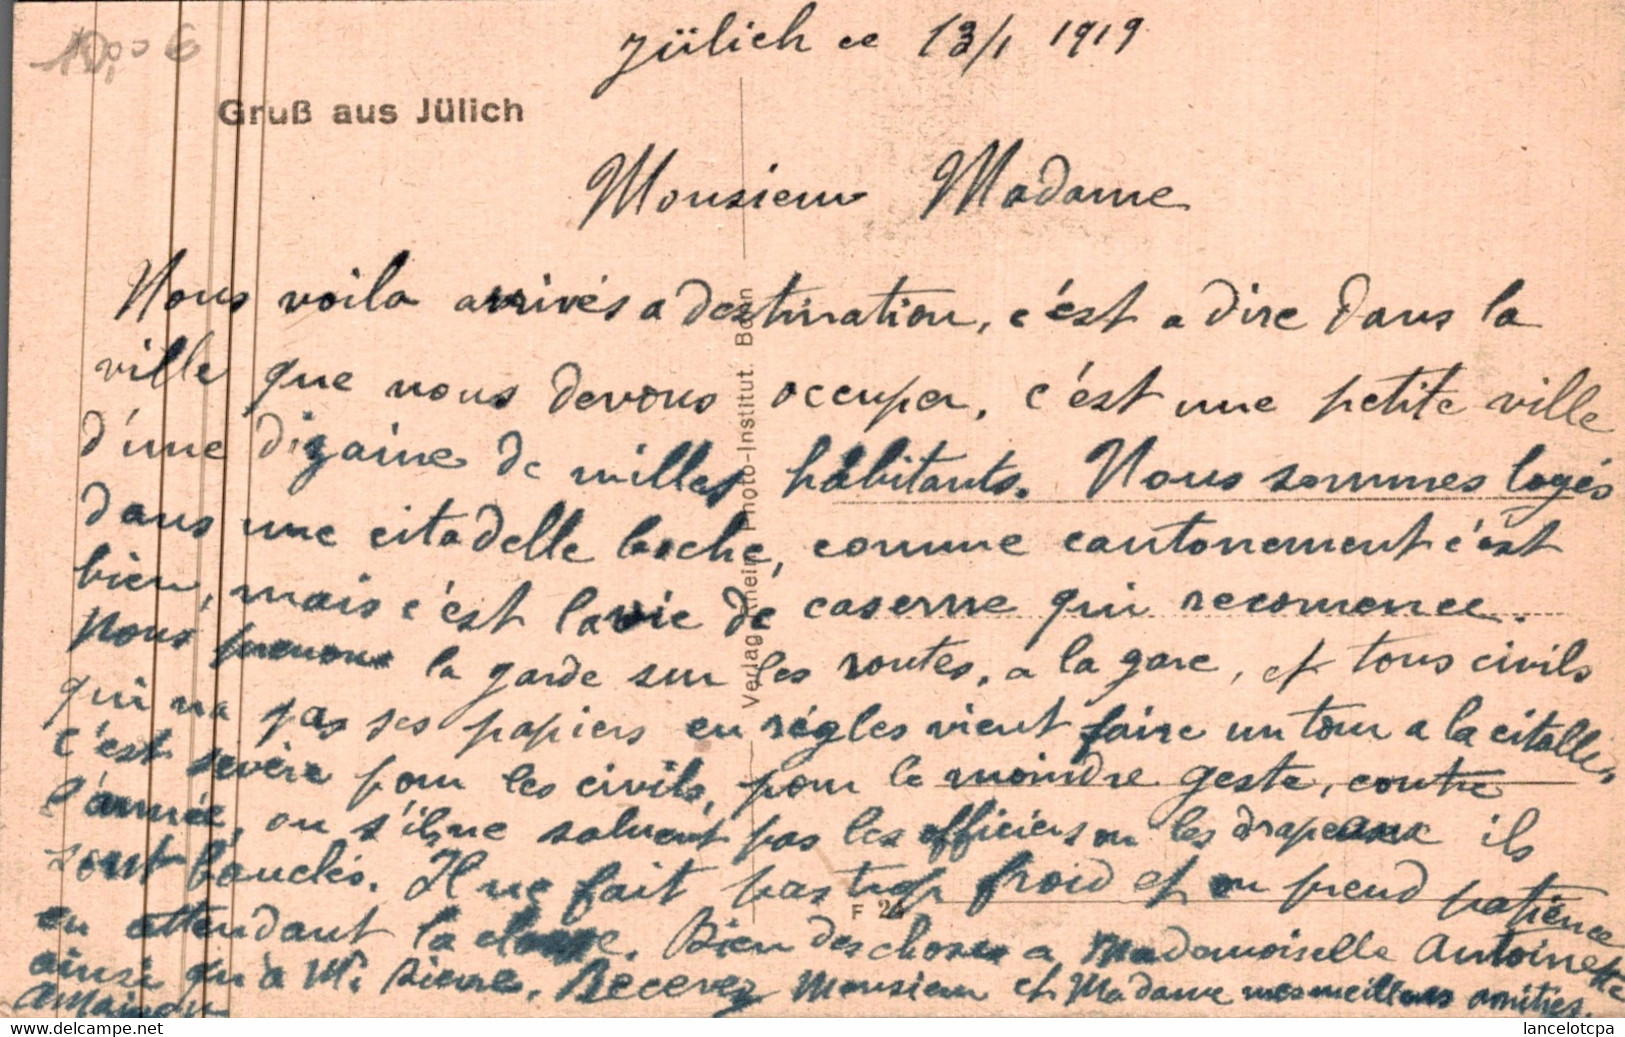 10,00 €
Jülich ce 13/1 1919
Gruß aus Jülich
Monsieur Madame
Nous voila arrivés a destination, c'est a dire dans la
ville que nous devons occuper, c'est une petite ville
d'une dizaine de milles habitants. Nous sommes logés
dans une citadelle boche, comme cantonement c'est
bien, mais c'est la vie de caserne qui recomence.
Nous prenons la garde sur les routes, a la gare, et tous civils
qui na pas ses papiers en régles vient faire un tour a la citadelle,
c'est sevère pour les civils, pour le moindre geste, contre
l'armée, ou s'ils ne saluent pas les officiers ou les drapeaux ils
sont bouclés. Il ne fait pas trop froid et on prend patience
en attendant la classe. Bien des choses a Mademoiselle Antoinette
ainsi qu'a Mr Pierre. Recevez Monsieur et Madame mes meilleurs amitiés.
Verlag Rhein. Photo-Institut. Bonn
F 24
www.delcampe.net
lancelotcpa